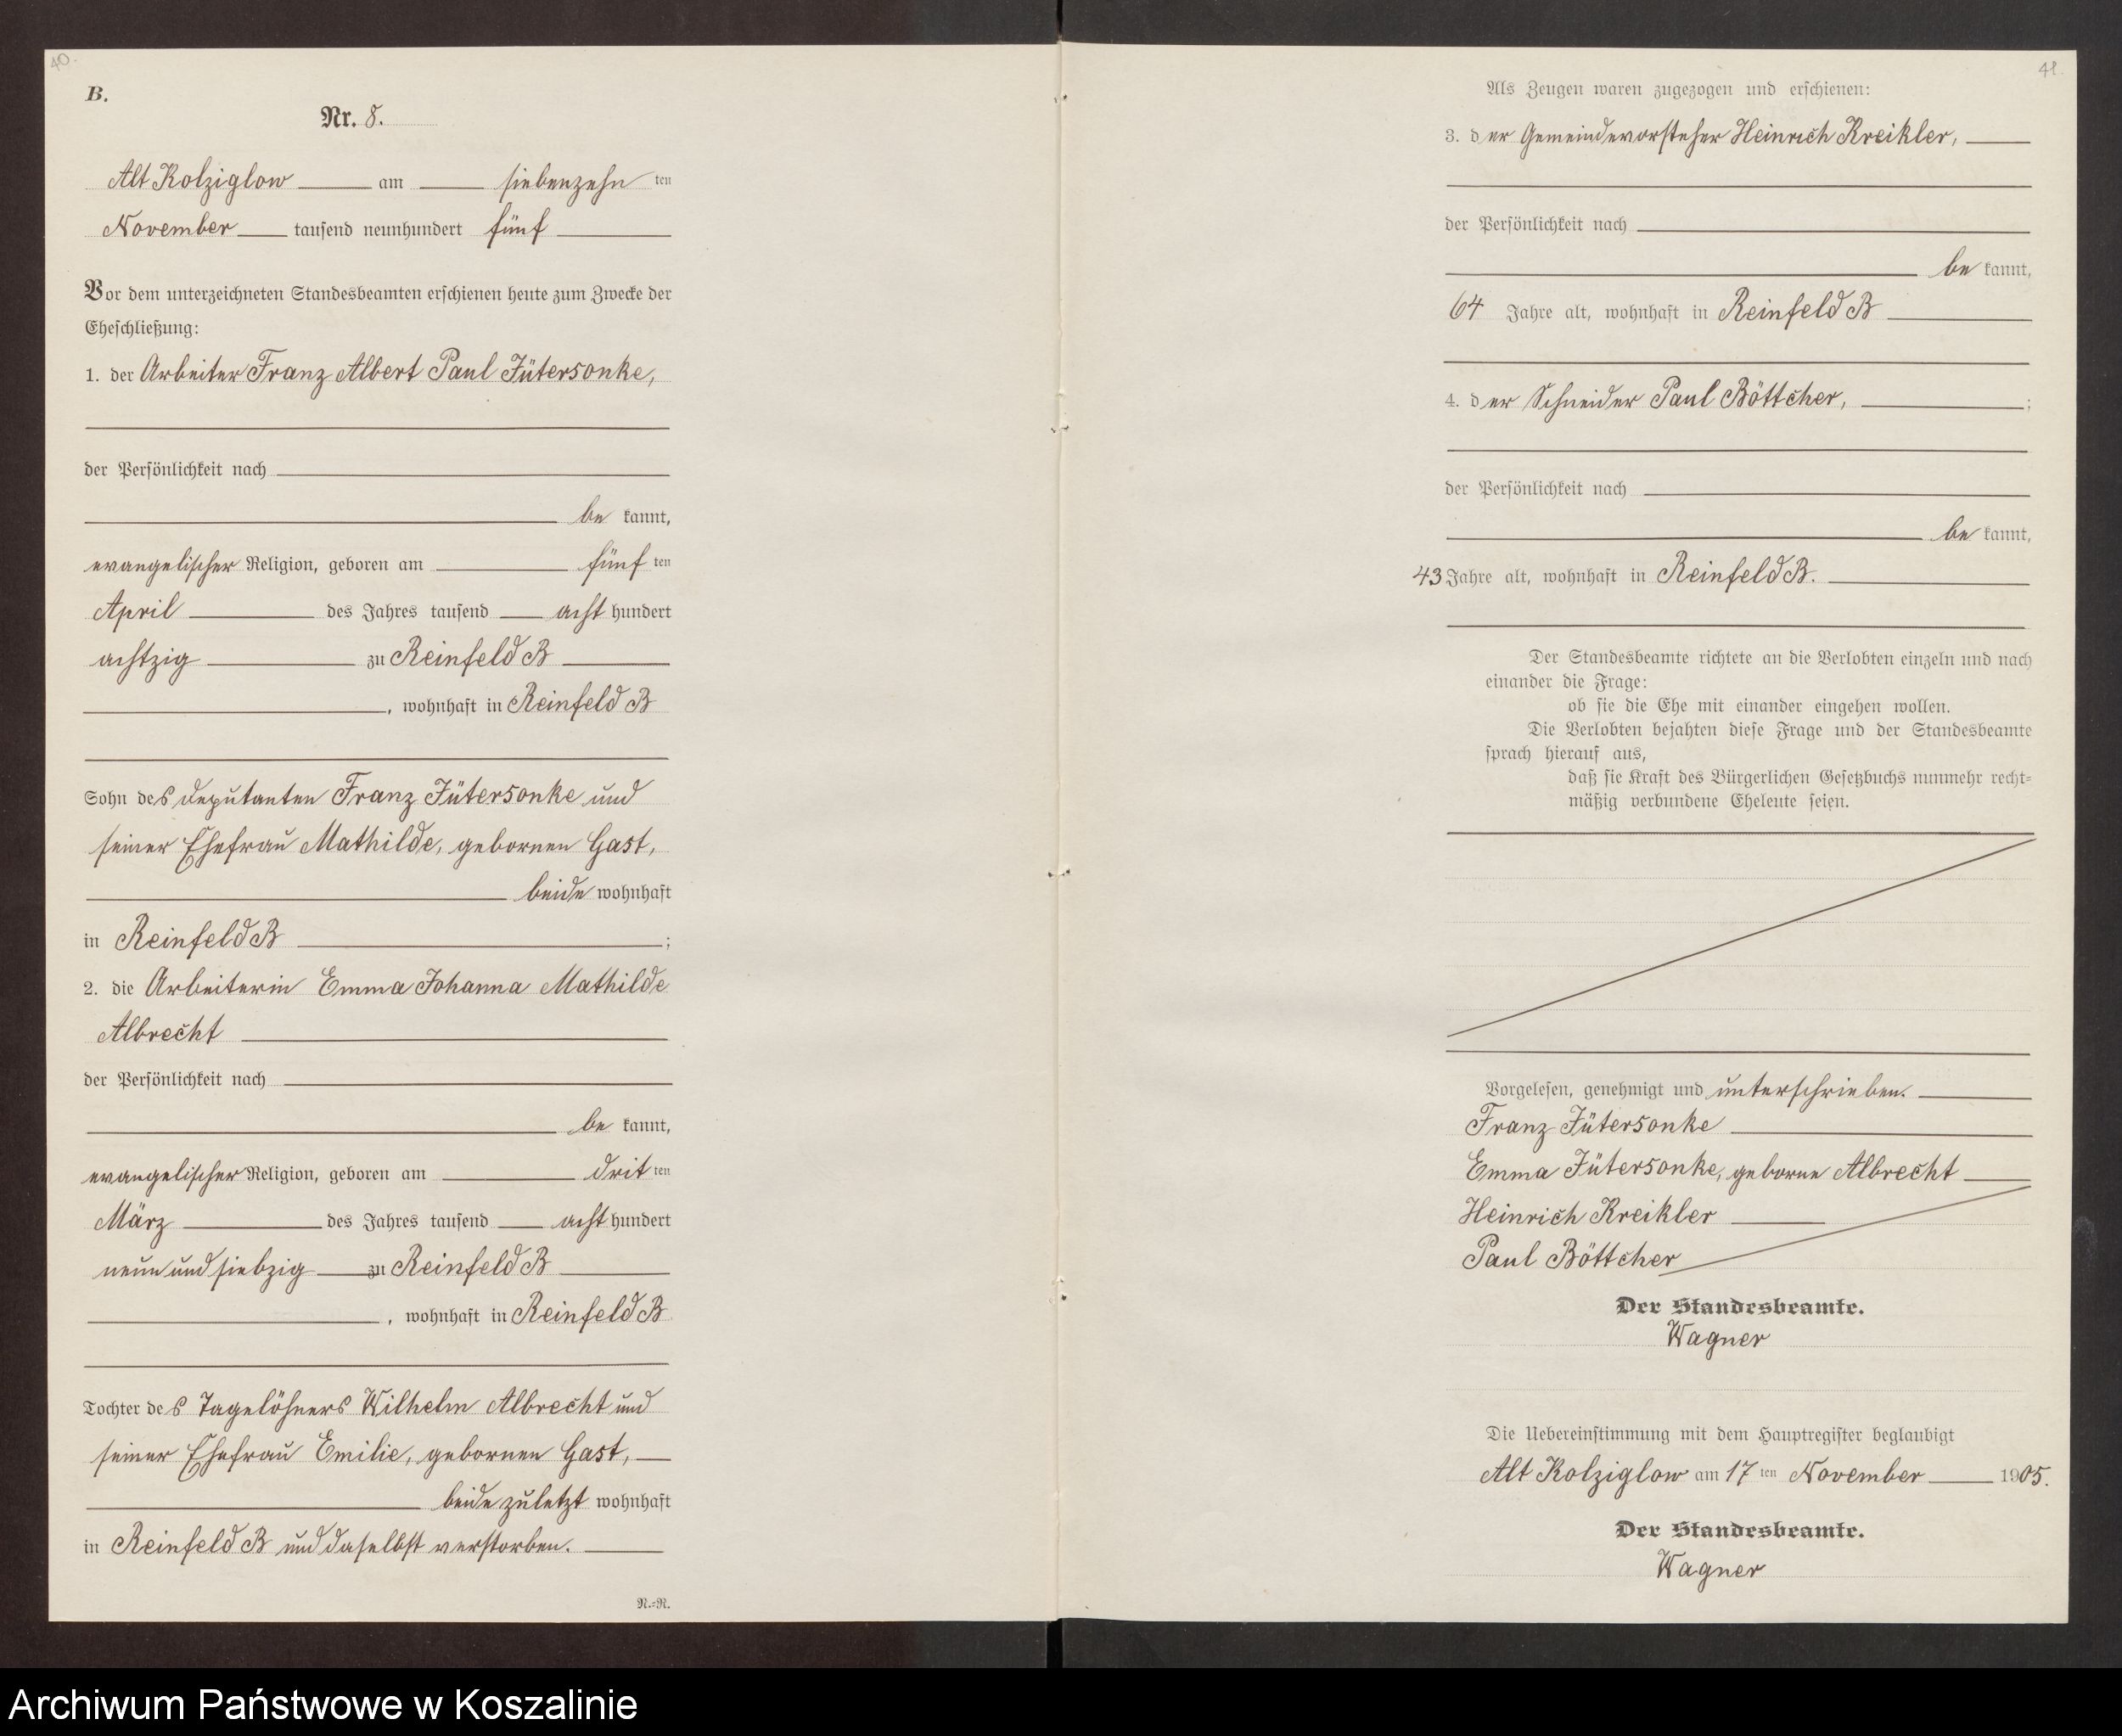 40.
B.
Nr. 8.
Alt Kolziglow am siebenzehn ten
November tausend neunhundert fünf
Vor dem unterzeichneten Standesbeamten erschienen heute zum Zwecke der
Eheschließung:
1. der Arbeiter Franz Albert Paul Jütersonke,
der Persönlichkeit nach
be kannt,
evangelischer Religion, geboren am fünf ten
April des Jahres tausend acht hundert
achtzig zu Reinfeld B
, wohnhaft in Reinfeld B
Sohn des Deputanten Franz Jütersonke und
seiner Ehefrau Mathilde, gebornen Gast,
beide wohnhaft
in Reinfeld B ;
2. die Arbeiterin Emma Johanna Mathilde
Albrecht
der Persönlichkeit nach
be kannt,
evangelischer Religion, geboren am drit ten
März des Jahres tausend acht hundert
neun und siebzig zu Reinfeld B
, wohnhaft in Reinfeld B
Tochter des Tagelöhners Wilhelm Albrecht und
seiner Ehefrau Emilie, gebornen Gast,
beide zuletzt wohnhaft
in Reinfeld B und daselbst verstorben.
N.=R.
41.
Als Zeugen waren zugezogen und erschienen:
3. der Gemeindevorsteher Heinrich Kreikler,
der Persönlichkeit nach
be kannt,
64 Jahre alt, wohnhaft in Reinfeld B
4. der Schneider Paul Böttcher, ;
der Persönlichkeit nach
be kannt,
43 Jahre alt, wohnhaft in Reinfeld B.
Der Standesbeamte richtete an die Verlobten einzeln und nach
einander die Frage:
ob sie die Ehe mit einander eingehen wollen.
Die Verlobten bejahten diese Frage und der Standesbeamte
sprach hierauf aus,
daß sie Kraft des Bürgerlichen Gesetzbuchs nunmehr recht=
mäßig verbundene Eheleute seien.
Vorgelesen, genehmigt und unterschrieben.
Franz Jütersonke
Emma Jütersonke, geborne Albrecht
Heinrich Kreikler
Paul Böttcher
Der Standesbeamte.
Wagner
Die Uebereinstimmung mit dem Hauptregister beglaubigt
Alt Kolziglow am 17 ten November 1905.
Der Standesbeamte.
Wagner
Archiwum Państwowe w Koszalinie